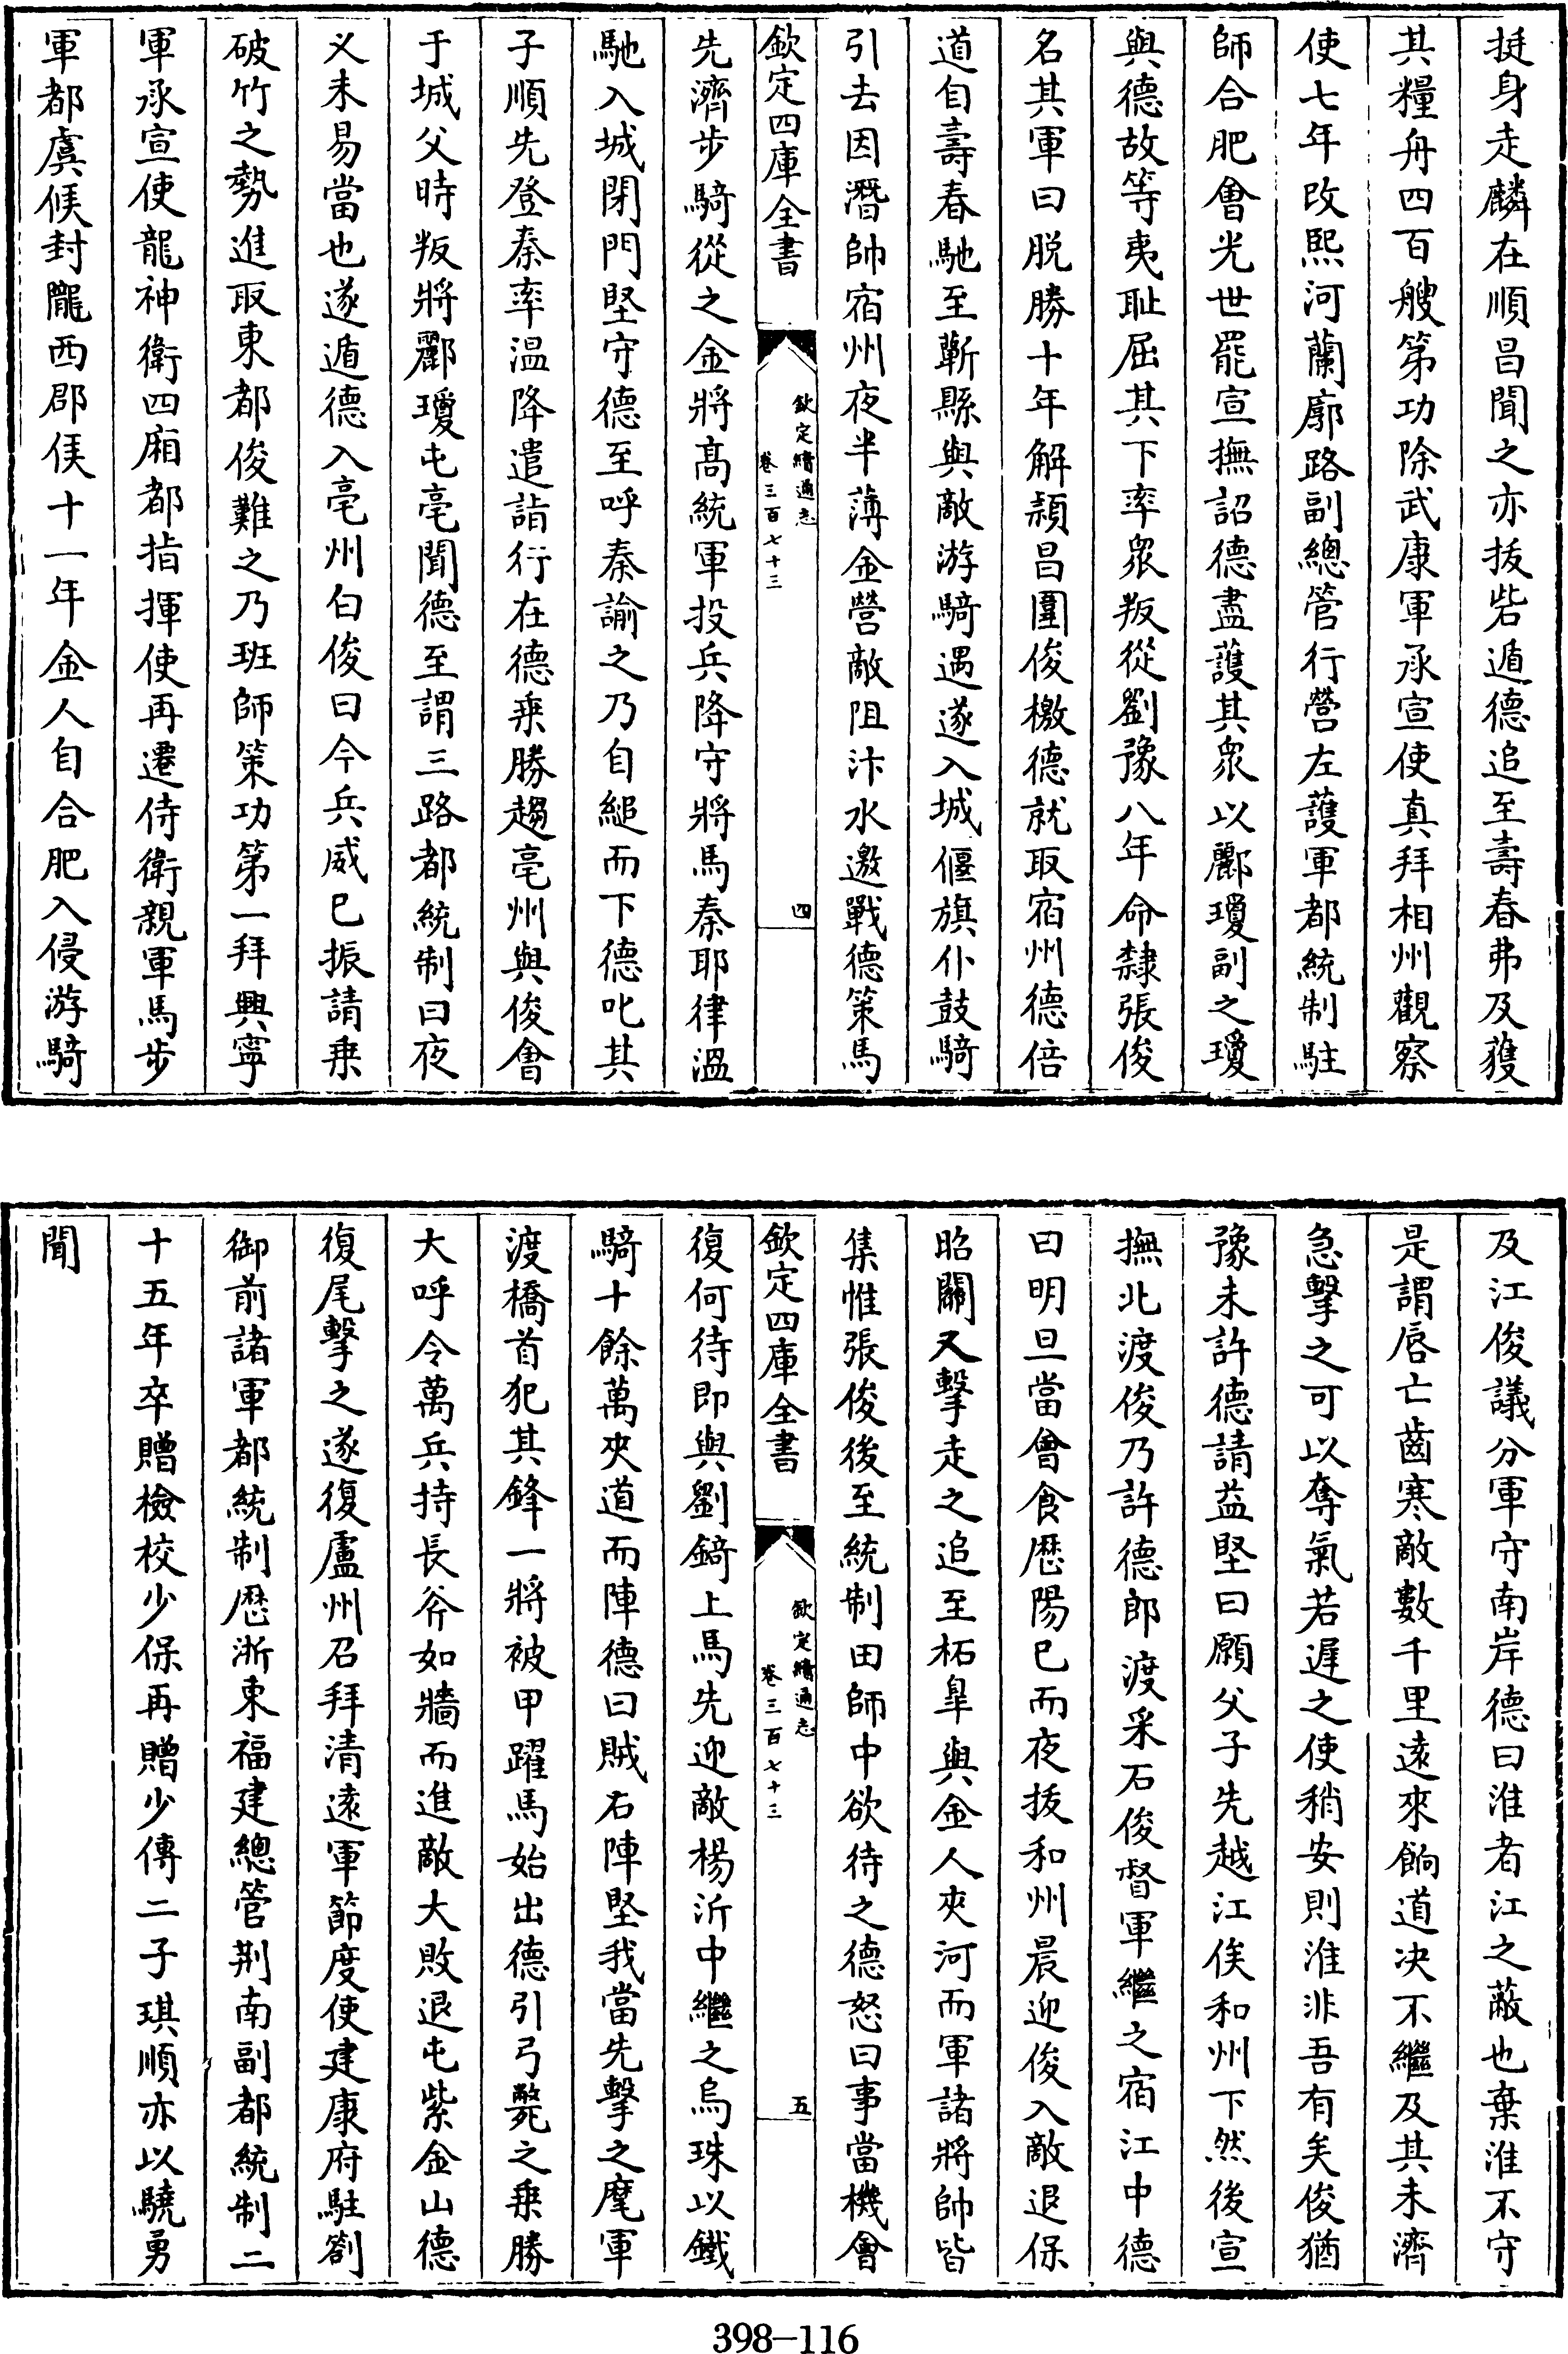 挺身走麟在順昌聞之亦拔砦遁德追至壽春弗及獲
其糧舟四百艘第功除武康軍承宣使真拜相州觀察
使七年改熙河蘭廓路副總管行營左護軍都統制駐
師合肥會光世罷宣撫詔德盡護其衆以酈瓊副之瓊
與德故等夷恥屈其下率衆叛從劉豫八年命隸張俊
名其軍曰脱勝十年解潁昌圍俊檄德就取宿州德倍
道自壽春馳至蘄縣與敵游騎遇遂入城偃旗仆鼓騎
引去因潛師宿州夜半薄金營敵阻汴水邀戰德策馬
欽定四庫全書
欽定續通志
卷三百七十三
四
先濟步騎從之金將高統軍投兵降守將馬秦耶律溫
馳入城閉門堅守德至呼秦諭之乃自縋而下德叱其
子順先登秦率溫降遣詣行在德乗勝趨亳州與俊會
于城父時叛將酈瓊屯亳聞德至謂三路都統制曰夜
义未易當也遂遁德入亳州白俊曰今兵威已振請乗
破竹之勢進取東都俊難之乃班師策功第一拜興寧
軍承宣使龍神衛四廂都指揮使再遷侍衛親軍馬步
軍都虞候封隴西郡侯十一年金人自合肥入侵游騎
及江俊議分軍守南岸德曰淮者江之蔽也棄淮不守
是謂唇亡齒寒敵數千里遠來餉道決不繼及其未濟
急擊之可以奪氣若遲之使稍安則淮非吾有矣俊猶
豫未許德請益堅曰願父子先越江俟和州下然後宣
撫北渡俊乃許德郎渡采石俊督軍繼之宿江中德
曰明旦當會食歴陽已而夜拔和州晨迎俊入敵退保
昭關又擊走之追至柘臯與金人夾河而軍諸將帥皆
集惟張俊後至統制田師中欲待之德怒曰事當機會
欽定四庫全書
欽定續通志
卷三百七十三
五
復何待即與劉錡上馬先迎敵楊沂中繼之烏珠以鐵
騎十餘萬夾道而陣德曰賊右陣堅我當先擊之麾軍
渡橋首犯其鋒一將被甲躍馬始出德引弓斃之乗勝
大呼令萬兵持長斧如牆而進敵大敗退屯紫金山德
復尾擊之遂復廬州召拜清遠軍節度使建康府駐劄
御前諸軍都統制歴浙東福建總管荆南副都統制二
十五年卒贈檢校少保再贈少傅二子琪順亦以驍勇
聞
398-116